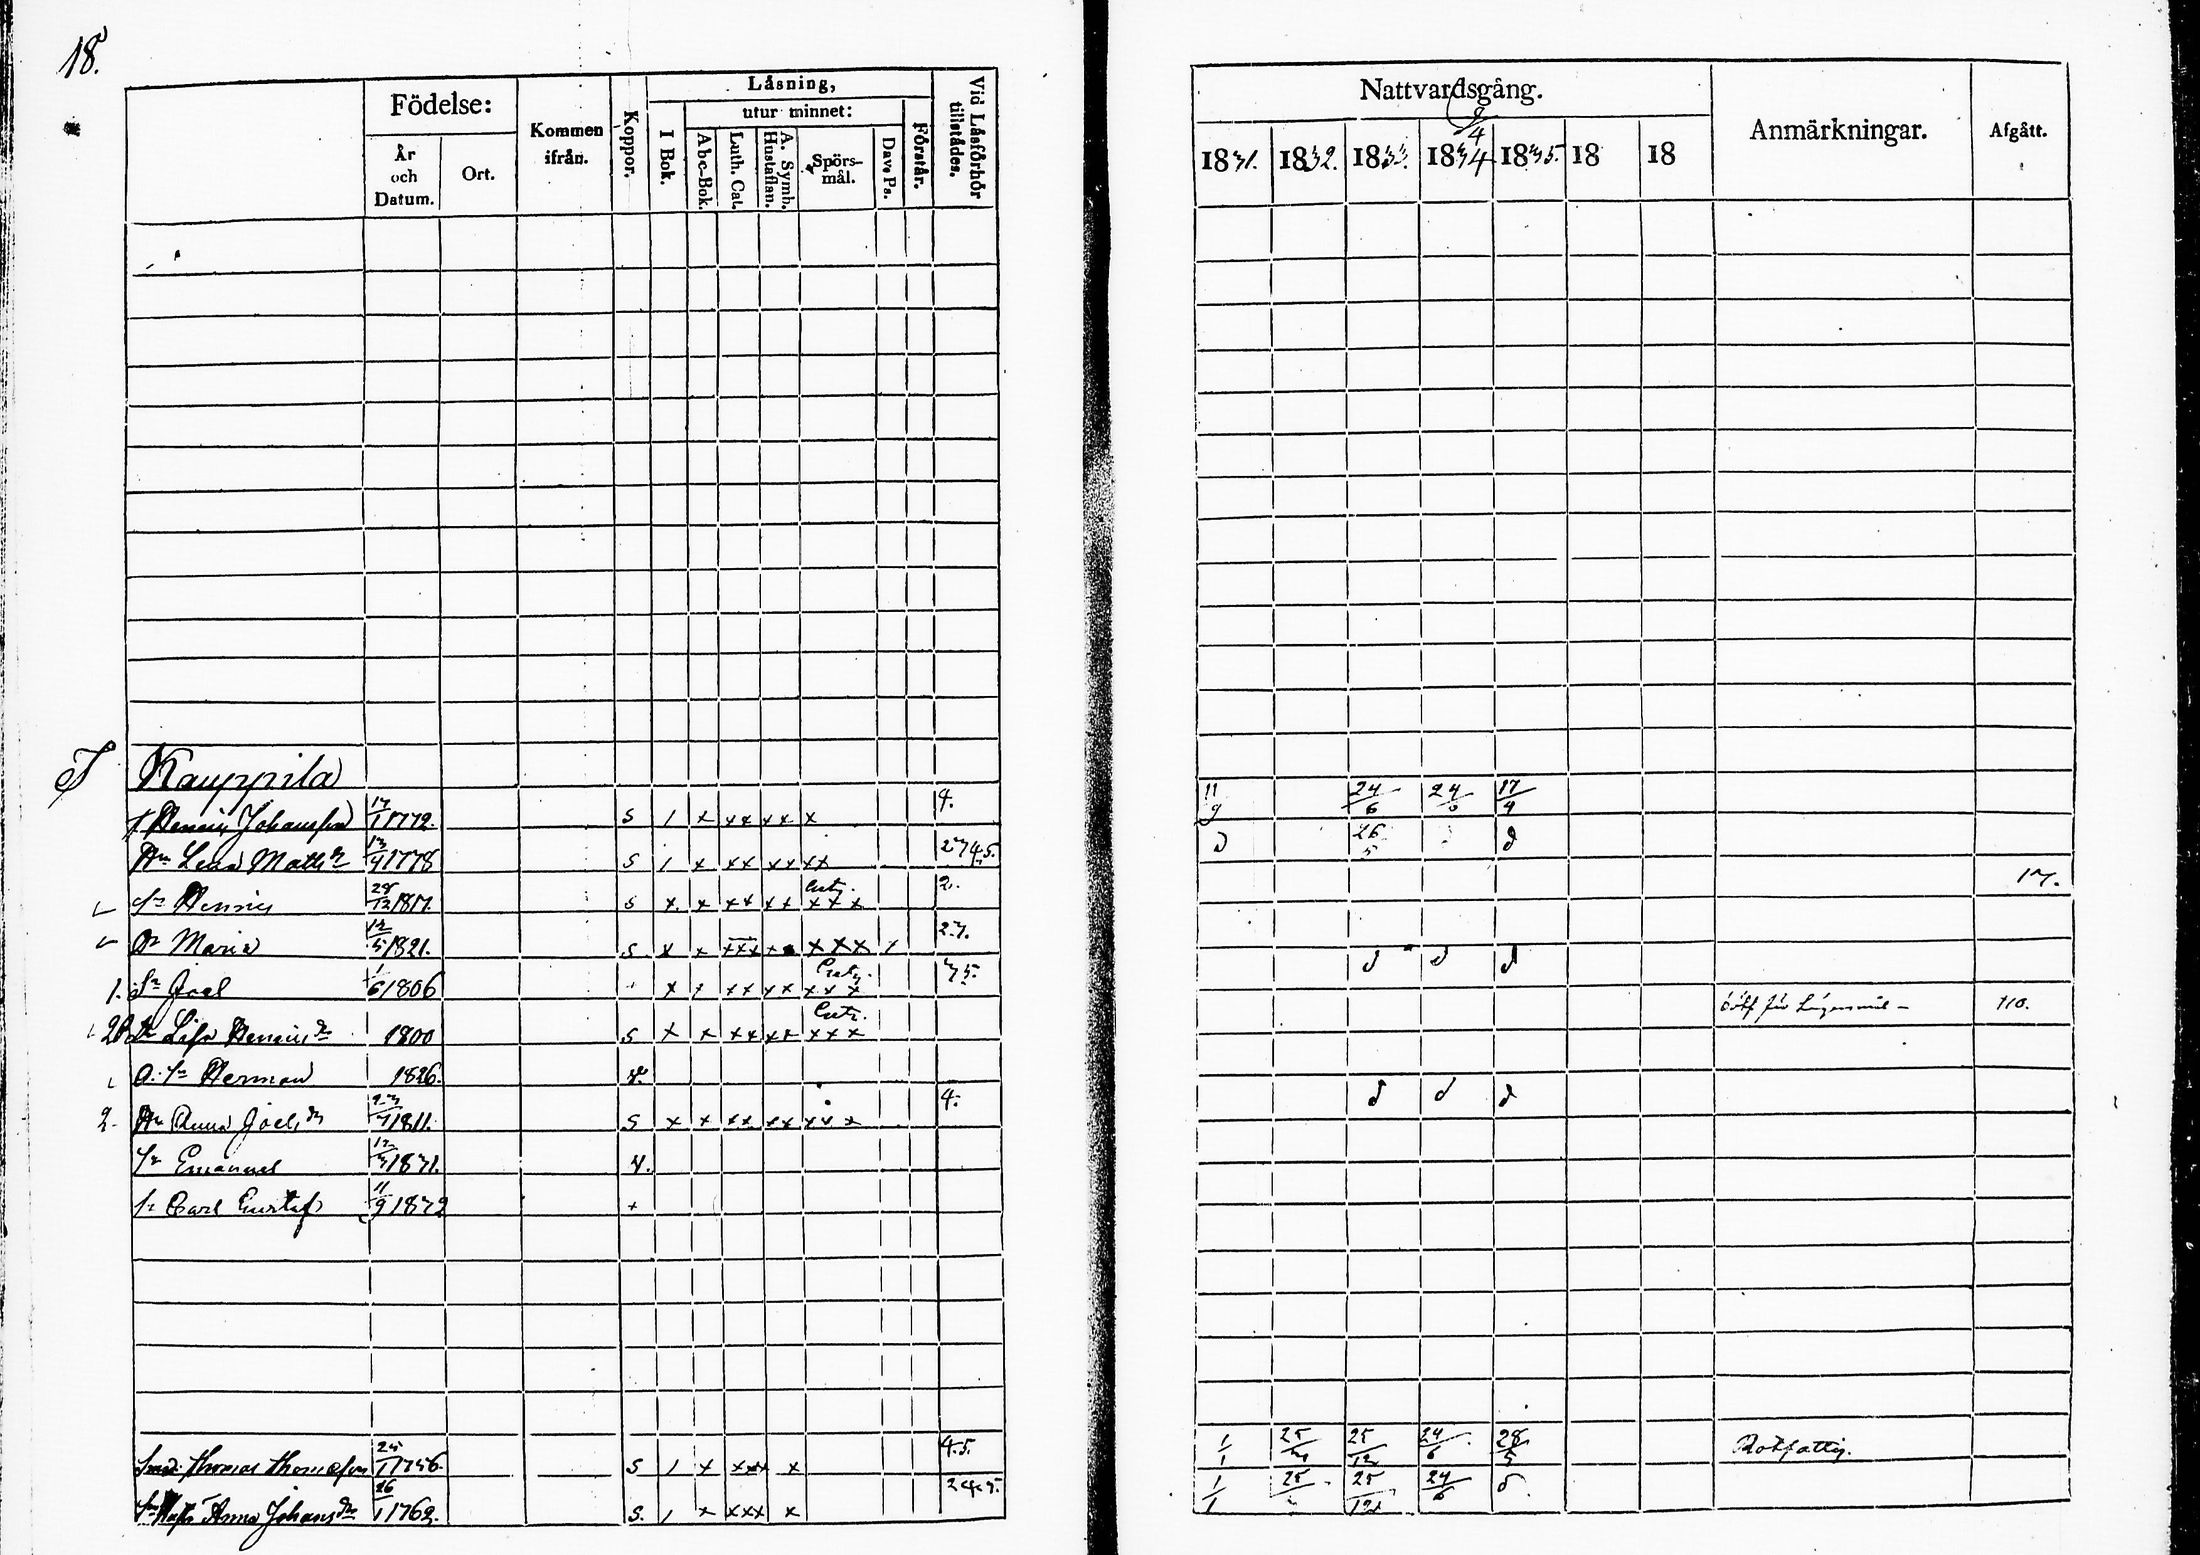 18.
Födelse:
År och Datum.
Ort.
Kommen ifrån.
Koppor.
Läsning,
I Bok.
utur minnet:
Abc-Bok.
Luth. Cat.
A. Symb. Hustaflan.
Spörsmål.
Dav. Ps.
Förstår.
Vid Läsförhör tillstådes.
Nattvardsgång.
9/4
1831. 1832. 1833. 1834 1835. 18 18
Anmärkningar.
Afgått.
Kauppila
Henric Johansson 17/1 1772. S 1 x xx xx x 4. 11/9 24/6 24/6 17/4
Hu Lena Matts dr 13/4 1778 S 1 x xx xx xx 2345. d 26/5 d
Sn Henric 28/12 1817. S x x xx xx xxx 2. 17.
Dr Maria 12/5 1821. S x x xxx xx xxx 23.
1. Sn Joel 1/6 1806 + x x xx xx xxx 35. d d d
2 Lisa Henrics dr 1800 S x x xx xx xxx 110.
O. Sn Herman 1826. v.
2. Hu Anna Joels dr 1811. S x x xx xx xxx 4. d d d
Sn Emanuel 12/3 1831. v.
Sn Carl Gustaf 11/9 1832 +
Thomas Thomasson 25/1 1756. S 1 x xxx x 4.5. 1/1 25 25/12 24/6 28/5 Rotfattig.
Anna Johans dr 26/1 1762. S. 1 x xxx x 24.5. 1/1 25 25/12 24/6 d